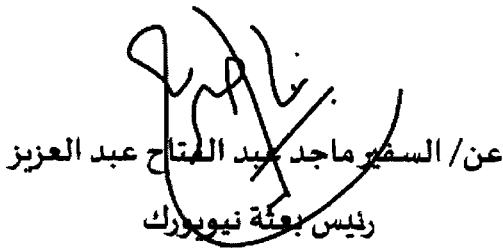 عن/ السفير ماجد عبد الفتاح عبد العزيز
رئيس بعثة نيويورك